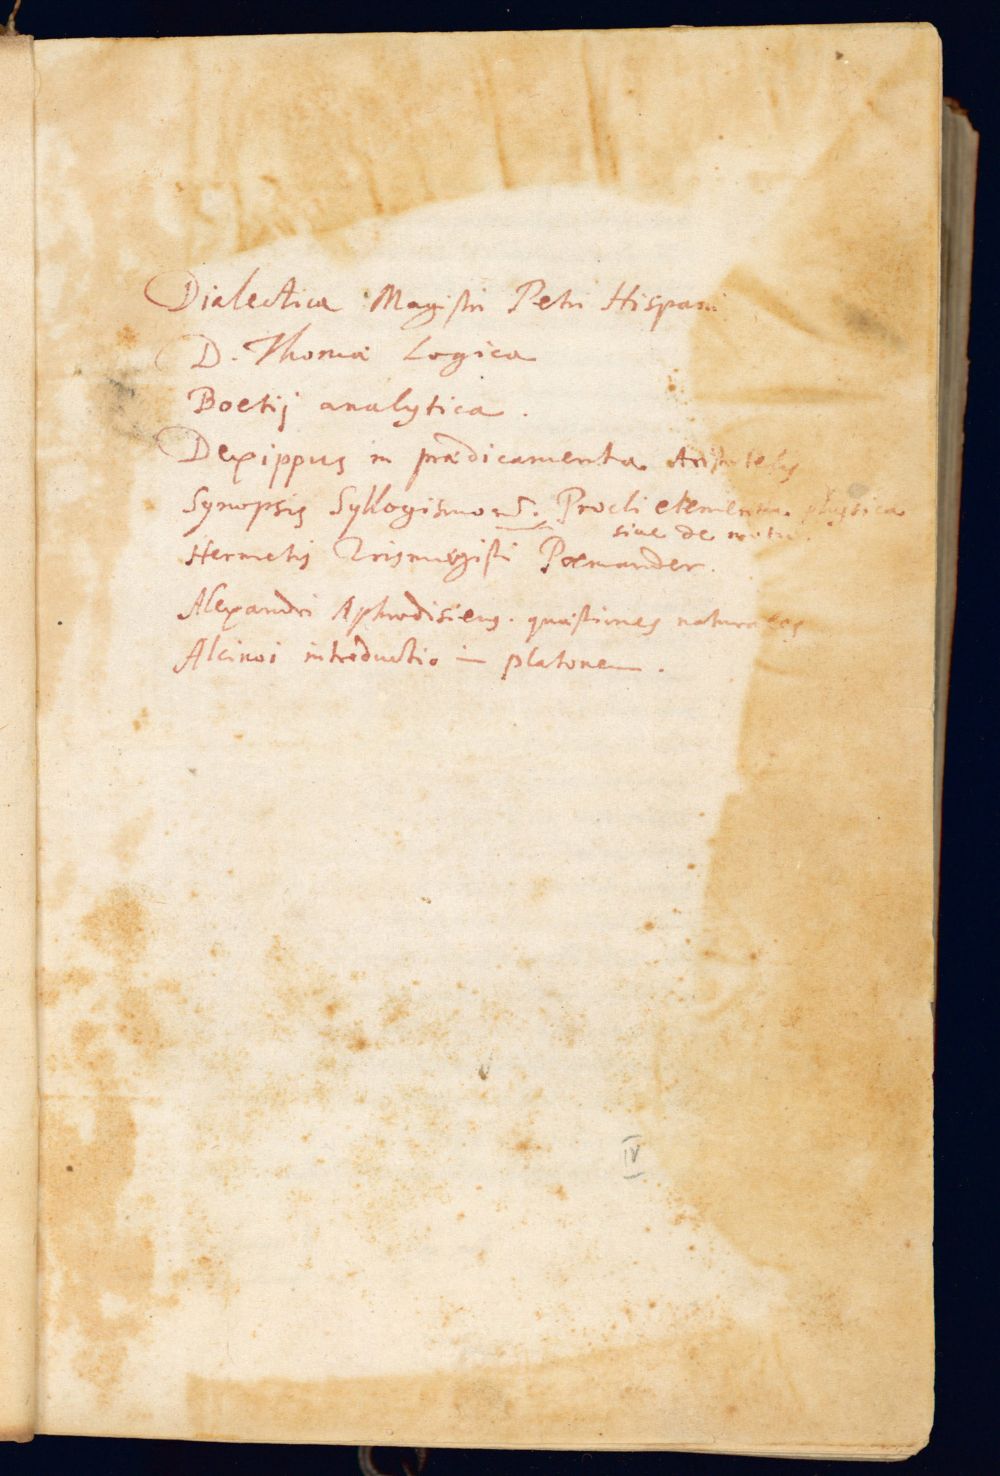 Dialectica Magistri Petri Hispani
D. Thomæ Logica
Boetij analytica.
Dexippus in prædicamenta Aristotelis
Synopsis Syllogismorum. Procli elementa physica
sive de motu.
Hermetis Trismegisti Poemander.
Alexandri Aphrodisieus. quæstiones naturales
Alcinoi introductio in platonem.
IV